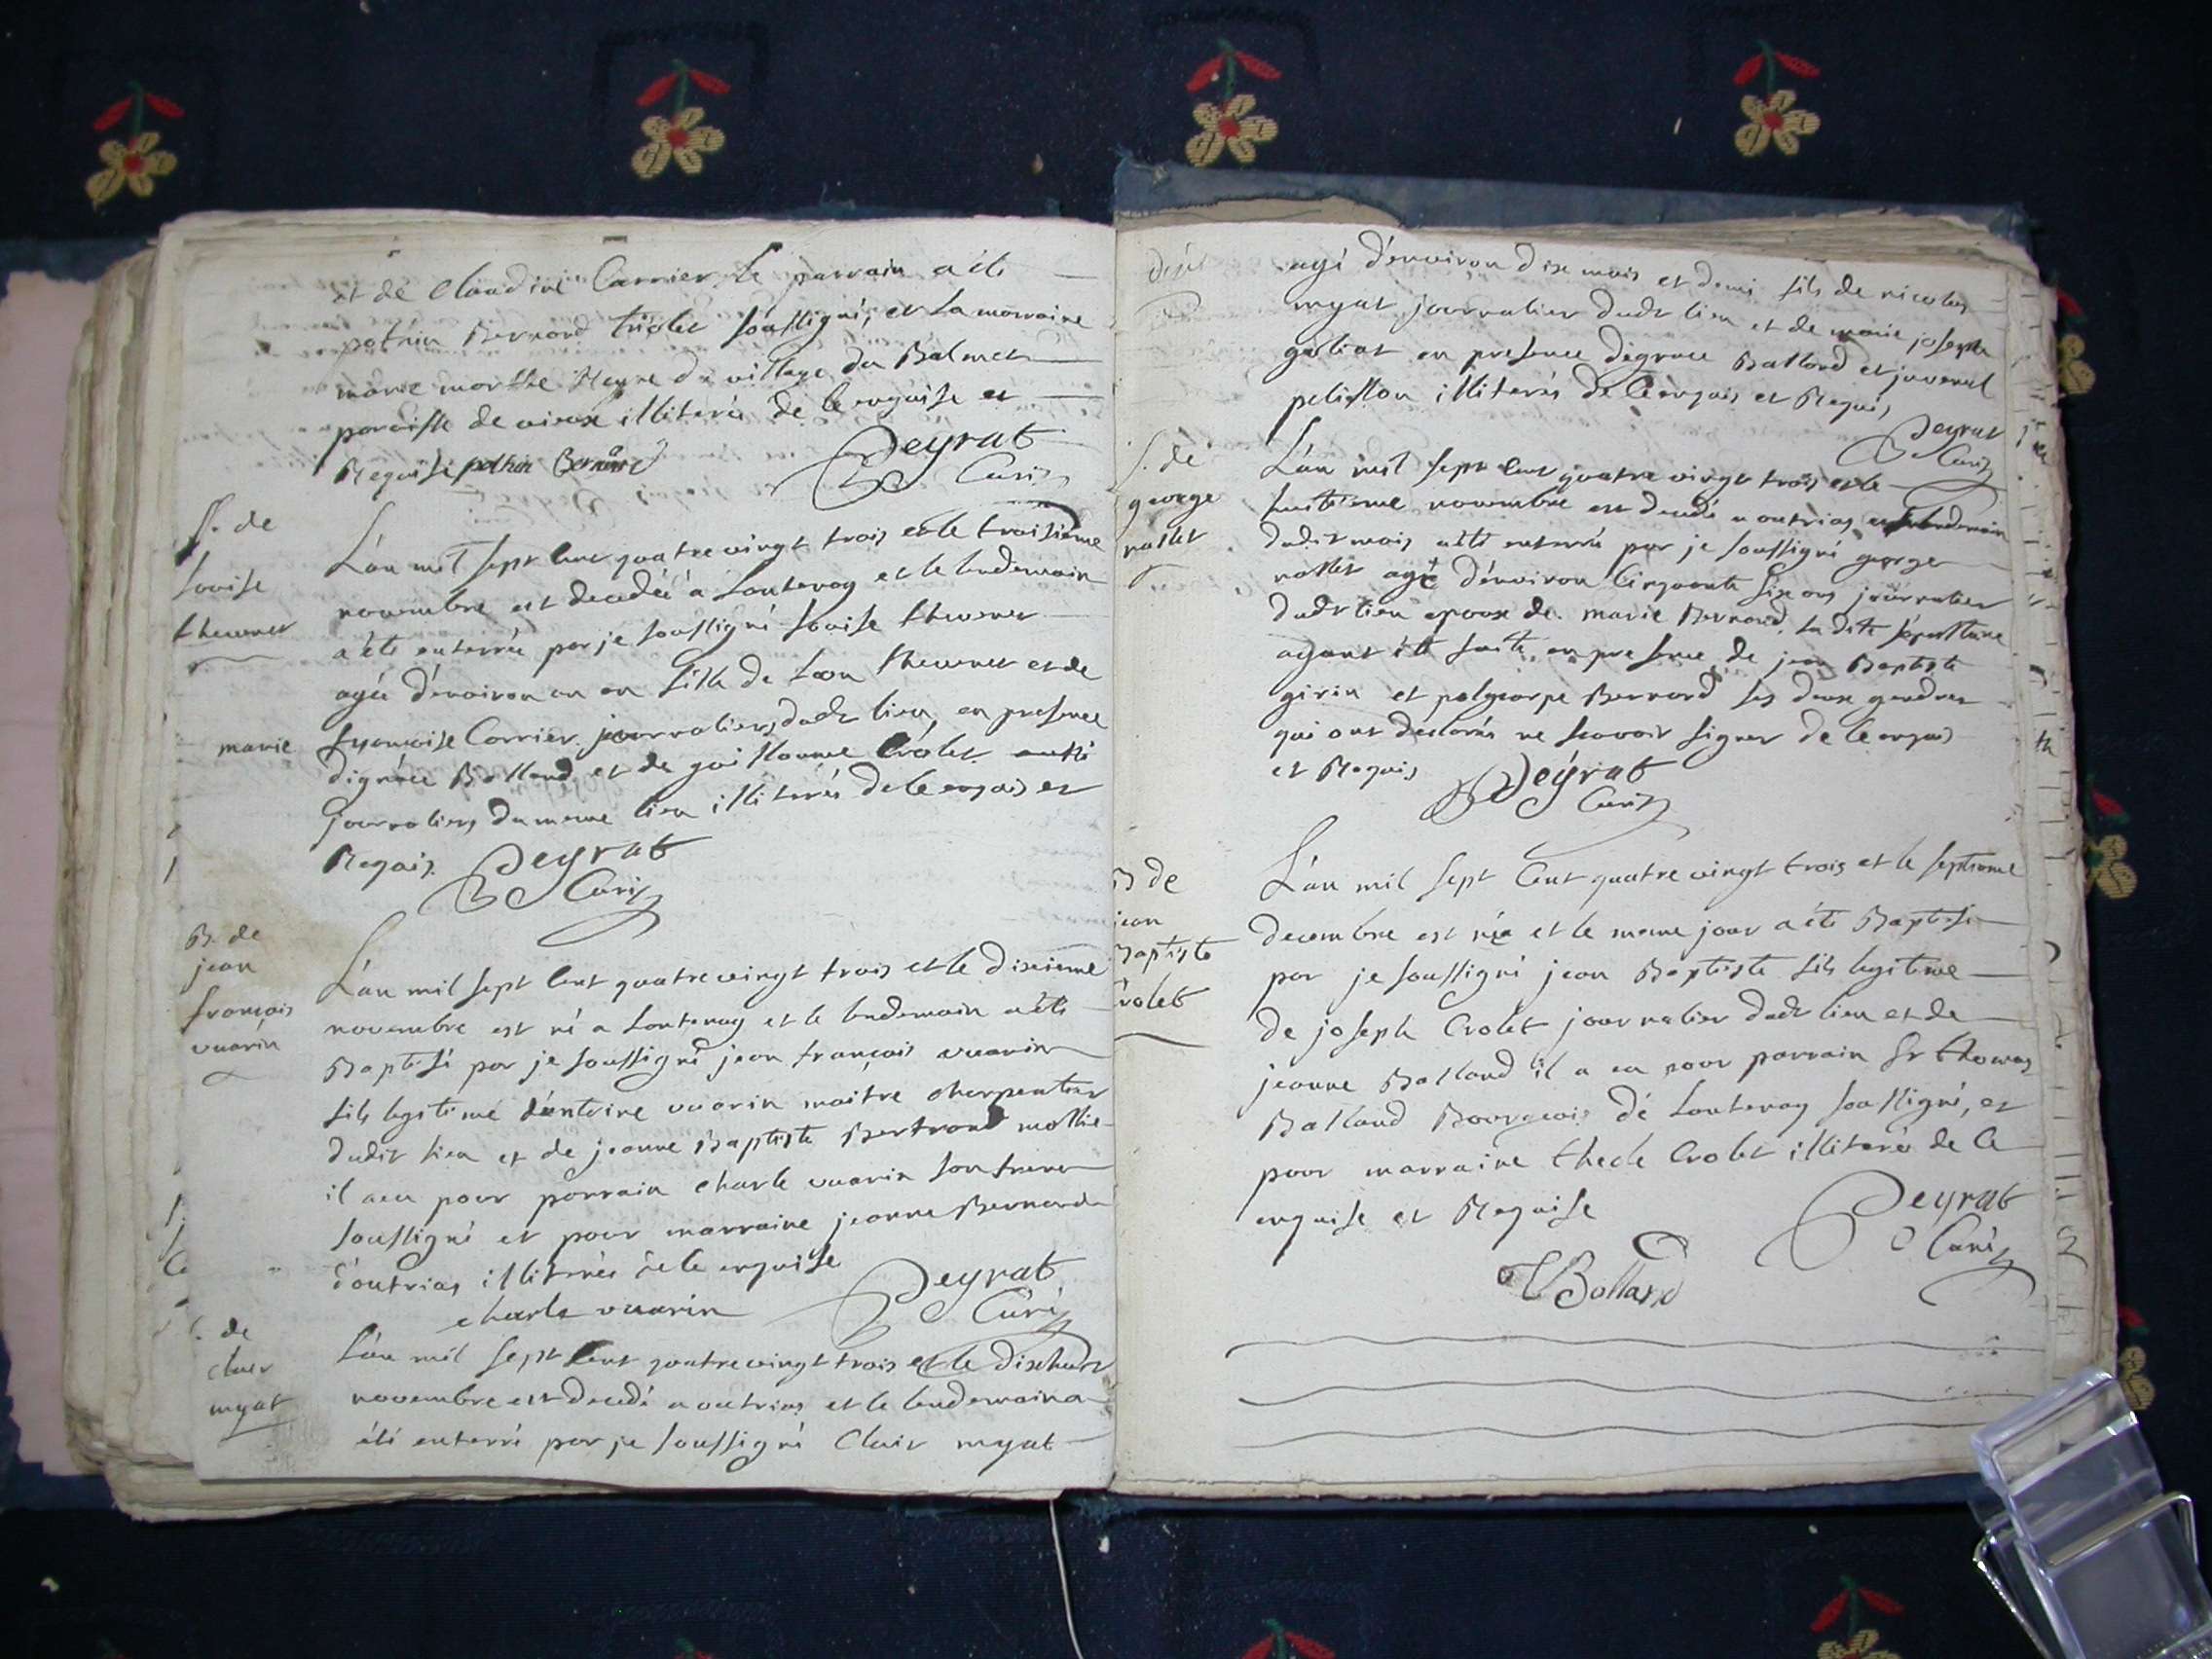 et de Claudine Carrier le parrain a été
potrin Bernard triolet soussigné, et la marraine
marie marthe du village du Balmet
paroisse de vieux illiterés de ce enquise et
Requise pothin Bernard
Peyrat
Curé
S. de
Louise
thevenet
L'an mil sept cent quatre vingt trois et le troisieme
novembre est decedée a Lontenay et le lendemain
a été enterrée par je soussigné Louise thevenet
agée d'environ un an fille de thevenet et de
marie
françoise Carrier journaliers dudt lieu, en presence
dignace Balland et de guillaume Crolet aussi
journaliers du meme lieu illiterés de ce enquis et
Requis. Peyrat
Curé
B. de
jean
françois
vuarin
L'an mil sept cent quatre vingt trois et le dixieme
novembre est né a Lontenay et le lendemain a été
Baptisé par je soussigné jean françois vuarin
fils legitime d'entoine vuarin maitre charpentier
dudit lieu et de jeanne Baptiste Bertrand mollie
il a eu pour parrain charle vuarin son frere
soussigné et pour marraine jeanne Bernard
d'outrias illiterée de ce enquise
charle vuarin
Peyrat
Curé
S. de
clair
myat
L'an mil sept cent quatre vingt trois et le dixhuit
novembre est decedé a outrias et le lendemain a
été enterré par je soussigné Clair myat
agé d'environ dix mois et demi fils de nicolas
myat journalier dudt lieu et de marie joseph
golliat en presence dégnace Balland et juvenal
pelisson illiterés de ce enquis et Requis
Peyrat
Curé
S. de
george
nallet
L'an mil sept cent quatre vingt trois et le
huitieme novembre est decedé a outrias et le lendemain
dudit mois a été enterré par je soussigné george
nallet agé d'environ Cinquante six ans journalier
dudt lieu epoux de marie Bernard, la dite sepulture
ayant été faite en presence de jean Baptiste
girin et polycarpe Bernard ses deux gendres
qui ont declarés ne scavoir signer de ce enquis
et Requis
Peyrat
Curé
B de
jean
Baptiste
Crolet
L'an mil sept Cent quatre vingt trois et le septieme
decembre est né et le meme jour a été Baptisé
par je soussigné jean Baptiste fils legitime
de joseph Crolet journalier dudt lieu et de
jeanne Balland il a eu pour parrain Sr thomas
Balland Bourgeois de Lontenay soussigné, et
pour marraine thecle Crolet illiteré de ce
enquise et Requise
Peyrat
Curé
TBalland